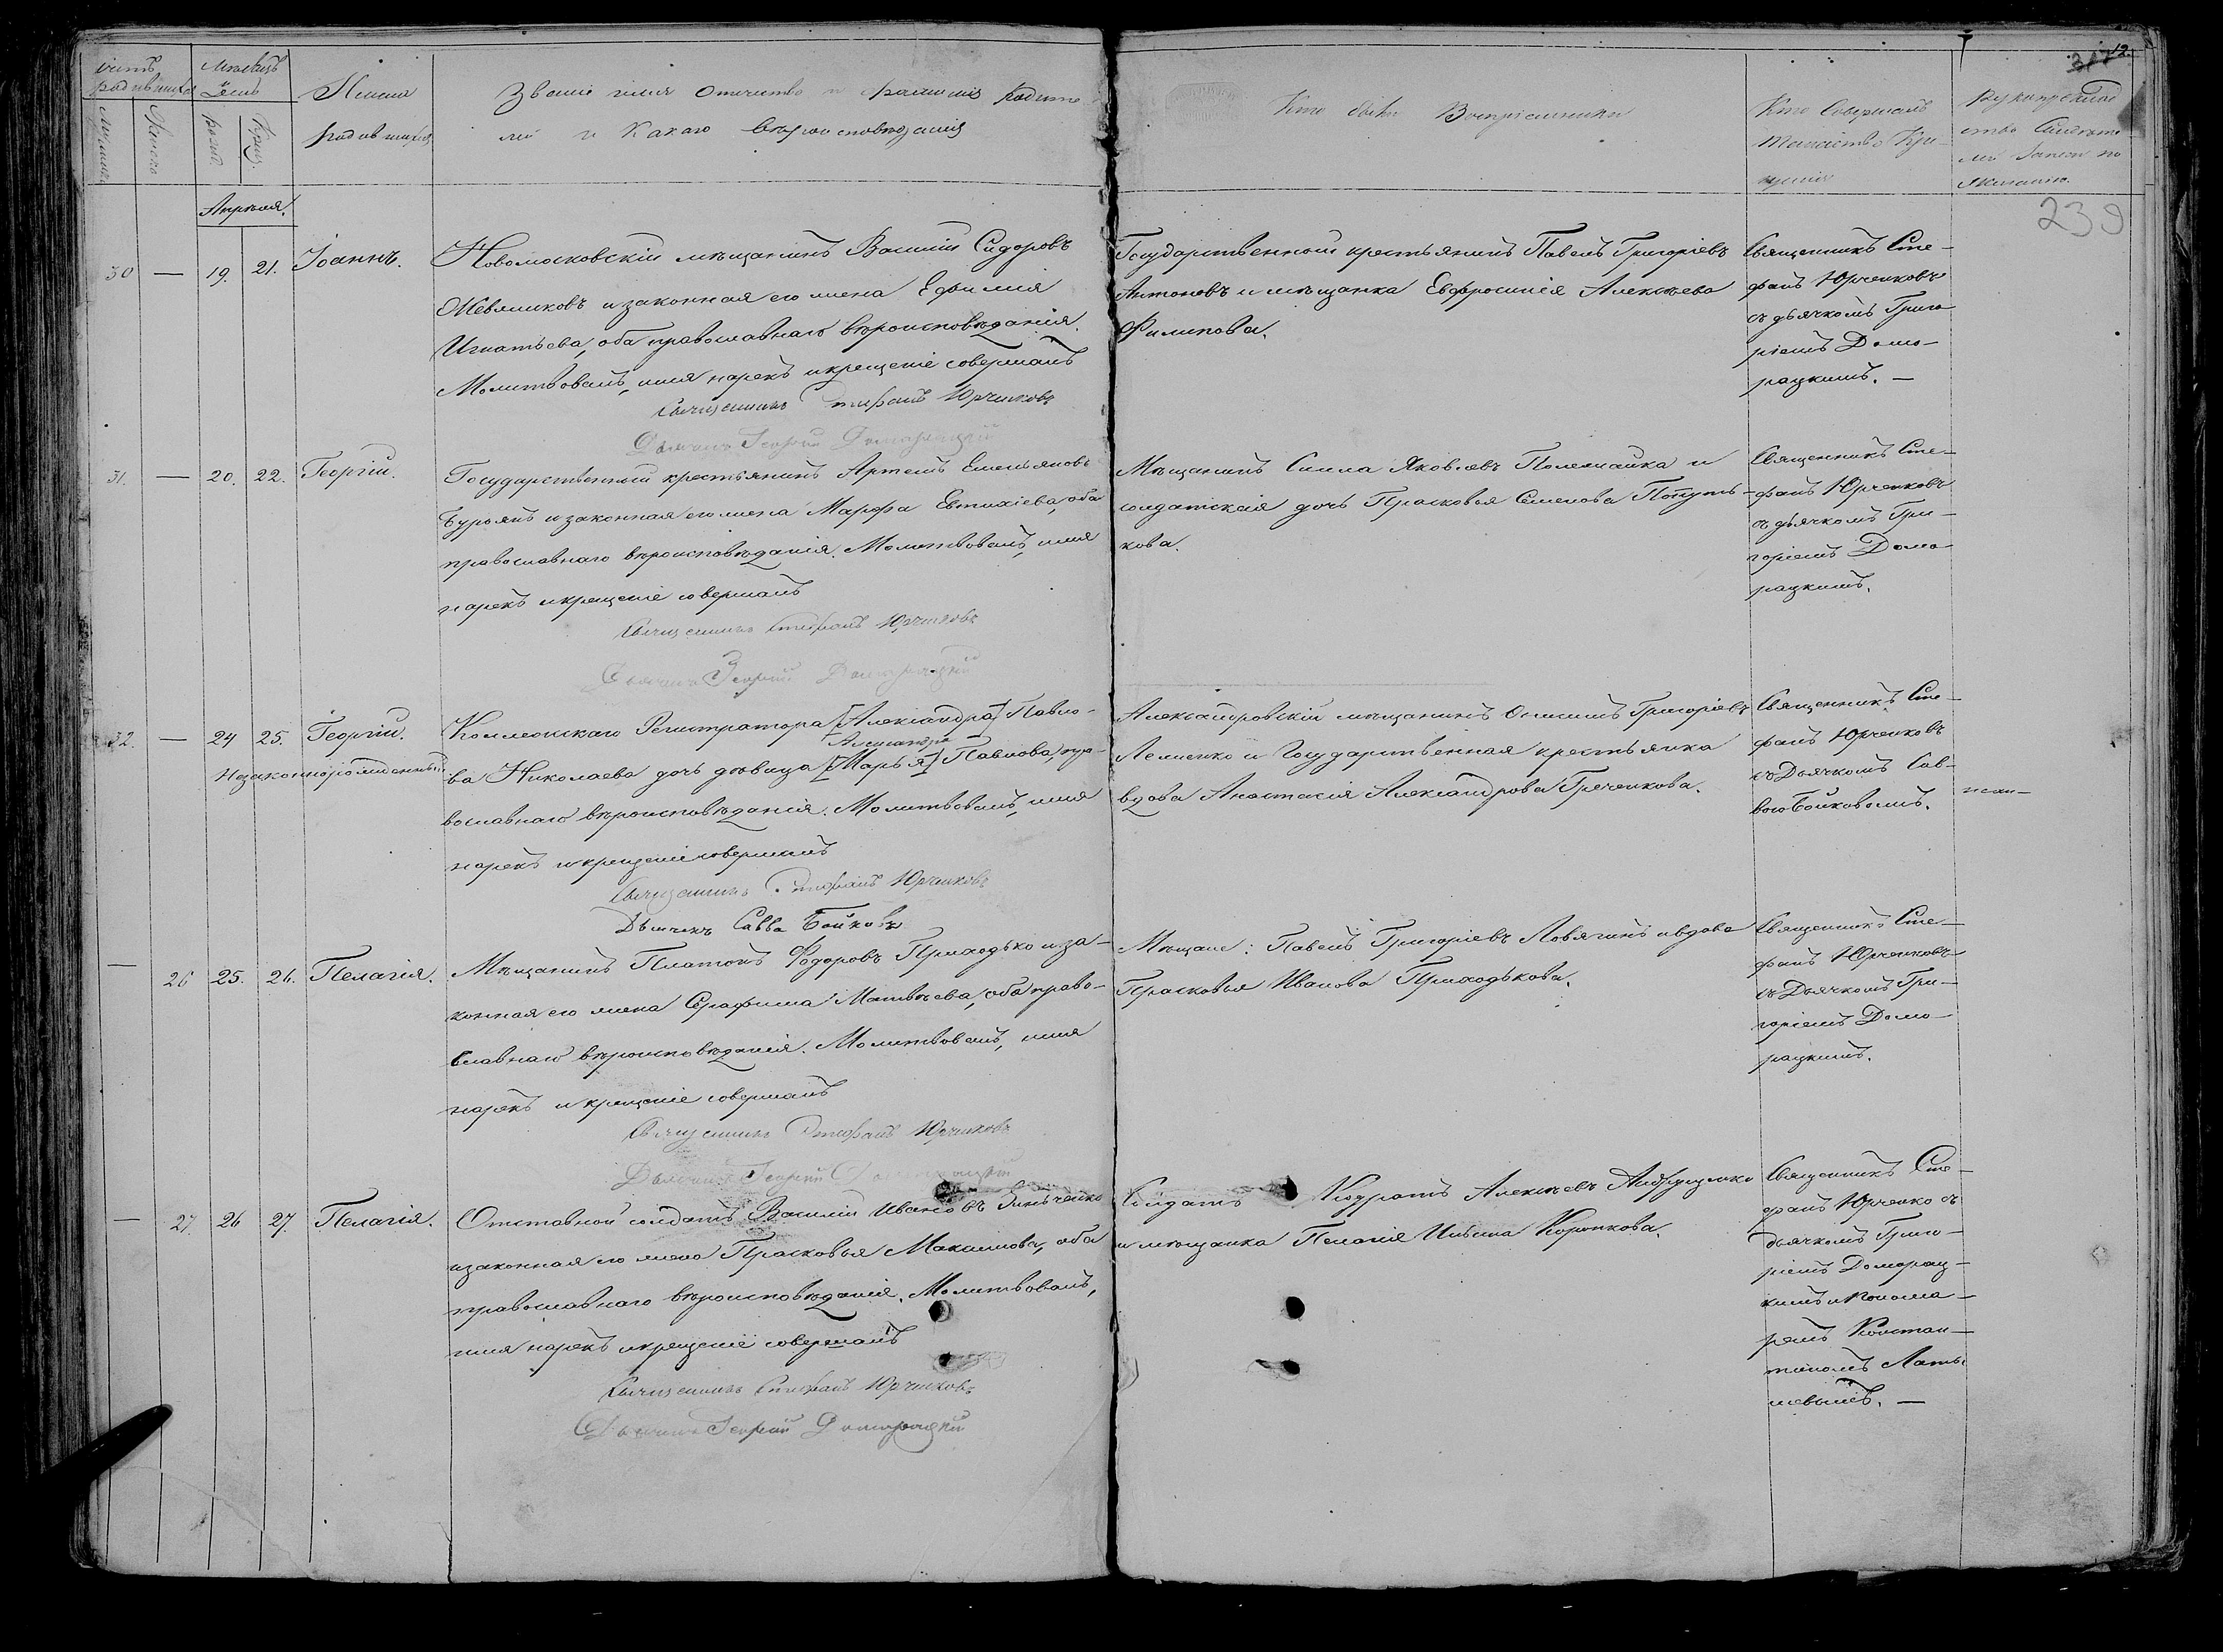 12.
317
239
Счетъ родившихся
Мѣсяцъ
День
Имена
родившихся
Званіе имя отечество и фамилія Родите-
лей и какого вѣроисповѣданія
Кто были Воспріемники
Кто Совершалъ
таинство Кре-
щенія
Рукоприклад
ство Свидѣте
лей записи по
желанію.
Апрѣля.
30 — 19. 21. Іоаннъ.
Новомосковскій мѣщанинъ Василій Сидоровъ
и законная его жена Ефимія
Игнатьева, оба православнаго вѣроисповѣданія.
Молитвовалъ, имя нарекъ и крещеніе совершалъ
Священникъ Стефанъ Юрченковъ
Дьячекъ Домарацкій
Государственный крестьянинъ Павелъ Григоріевъ
Антоновъ и мѣщанка Евфросинія Алексѣева
Филипова.
Священникъ Сте-
фанъ Юрченковъ
съ дьячкомъ Григо
ріемъ Домо-
рацкимъ. —
31. — 20. 22. Георгій.
Государственный крестьянинъ Артемъ Емельяновъ
Бурьянъ и законная его жена Марфа Евтихіева, оба
православнаго вѣроисповѣданія. Молитвовалъ, имя
нарекъ и крещеніе совершалъ
Священникъ Стефанъ Юрченковъ
Дьячекъ Домарацкій
Мѣщанинъ Сила Яковлевъ и
солдатская дочь Прасковья Семенова
кова.
Священникъ Сте-
фанъ Юрченковъ
съ дьячкомъ Гри-
горіемъ Домо
рацкимъ.
32. — 24 25. Георгій.
Незаконнорожденный
Коллежскаго Регистратора [Александра] Павло-
Александра
ва Николаева дочь дѣвица [Марья] Павлова, пра-
вославнаго вѣроисповѣданія. Молитвовалъ, имя
нарекъ и крещеніе совершалъ
Священникъ Стефанъ Юрченковъ
Дьячекъ Савва Бойковъ
Александровскій мѣщанинъ Онисимъ Григоріевъ
и Государственная крестьянка
вдова Анастасія Александрова Греченкова.
Священникъ Сте-
фанъ Юрченковъ
съ Дьячкомъ Сав-
вою Бойковымъ.
— 26 25. 26. Пелагія.
Мѣщанинъ Платонъ Ѳедоровъ Приходько и за-
конная его жена Серафима Матвѣева, оба право-
славнаго вѣроисповѣданія. Молитвовалъ, имя
нарекъ и крещеніе совершалъ
Священникъ Стефанъ Юрченковъ
Дьячекъ
Мѣщане: Павелъ Григоріевъ Ловягинъ и вдова
Прасковья Иванова Приходькова.
Священникъ Сте-
фанъ Юрченковъ
съ Дьячкомъ Гри-
горіемъ Домо-
рацкимъ.
— 27. 26 27. Пелагія.
Отставной солдатъ Василій Ивановъ Зинченко
и законная его жена Прасковья Максимова, оба
православнаго вѣроисповѣданія. Молитвовалъ,
имя нарекъ и крещеніе совершалъ
Священникъ Стефанъ Юрченковъ
Дьячекъ Домарацкій
Солдатъ Кодратъ Алексѣевъ Андрущенко
и мѣщанка Пелагія Ильина Коронкова.
Священникъ Сте-
фанъ Юрченко съ
дьячкомъ Григо-
ріемъ Доморац-
кимъ и Понома-
ремъ Констан-
тиномъ Латы
шевымъ. —